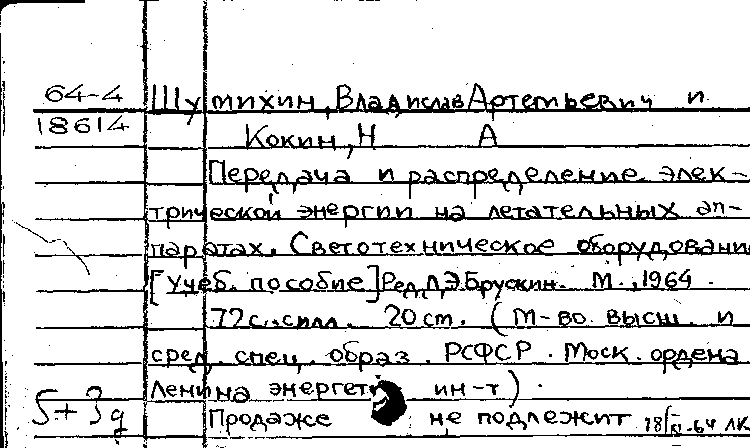 64-4 Шумихин, Владислав Артемьевич и
18614 Кокин, Н А
Передача и распределение элек-
трической энергии на летательных ап-
паратах. Светотехническое оборудование
[Учеб. пособие] Ред. Л.Э.Брускин. М., 1964.
72 с. с илл. 20 см. (М-во высш. и
сред. спец. образ. РСФСР. Моск. ордена
Ленина энергет ин-т).
Продаже не подлежит